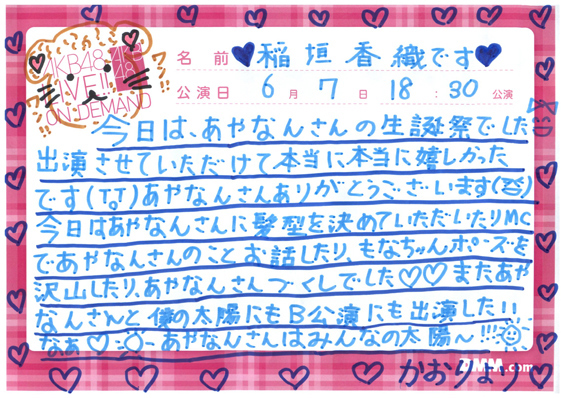 AKB48
LIVE!!
ON DEMAND
名前 ♥稲垣香織です♥
公演日 6月 7日 18:30公演
今日は、あやなんさんの生誕祭でした
出演させていただけて本当に本当に嬉しかった
です(T∇T)あやなんさんありがとうございます(>_<)
今日はあやなんさんに髪型を決めていただいたりMC
であやなんさんのことお話したり、もなちゃんポーズを
沢山したり、あやなんさんづくしでした♡♡またあや
なんさんと僕の太陽にもB公演にも出演したい
なぁ♡ あやなんさんはみんなの太陽〜!!!
DMM.com
かおりより